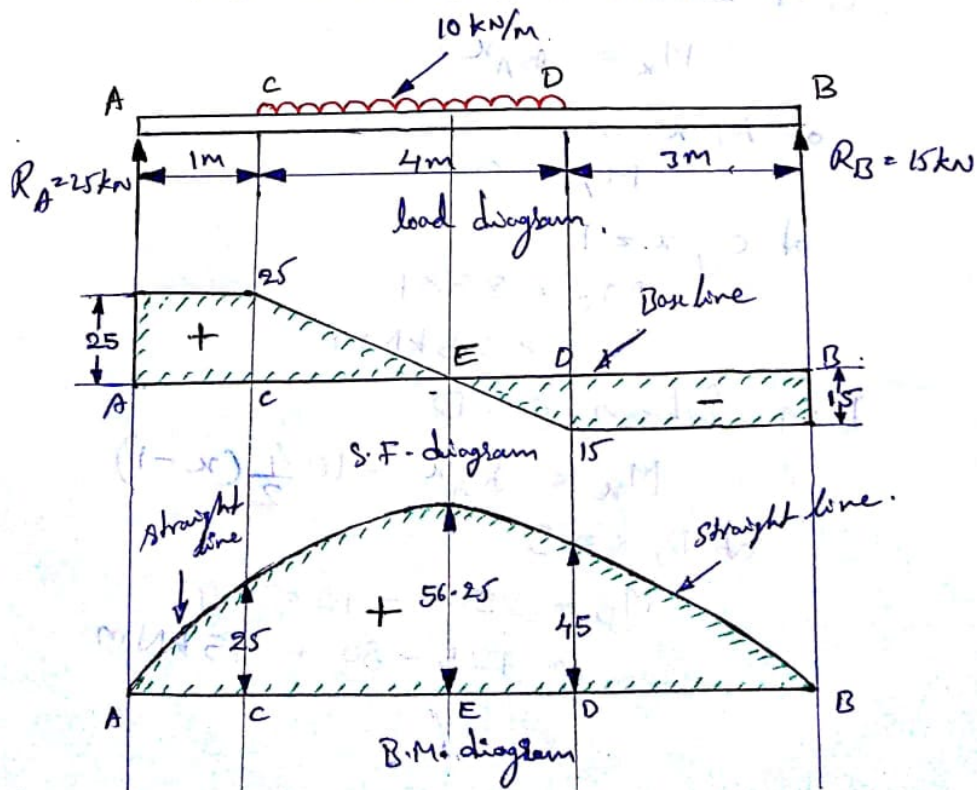 10 kN/m.
A C D B
1m 4m 3m
R_A = 25kN R_B = 15kN
load diagram.
25
Base line
25 + E D A B
A C - 15
S.F. diagram 15
straight line
straight line.
+ 56.25
25 45
A C E D B
B.M. diagram